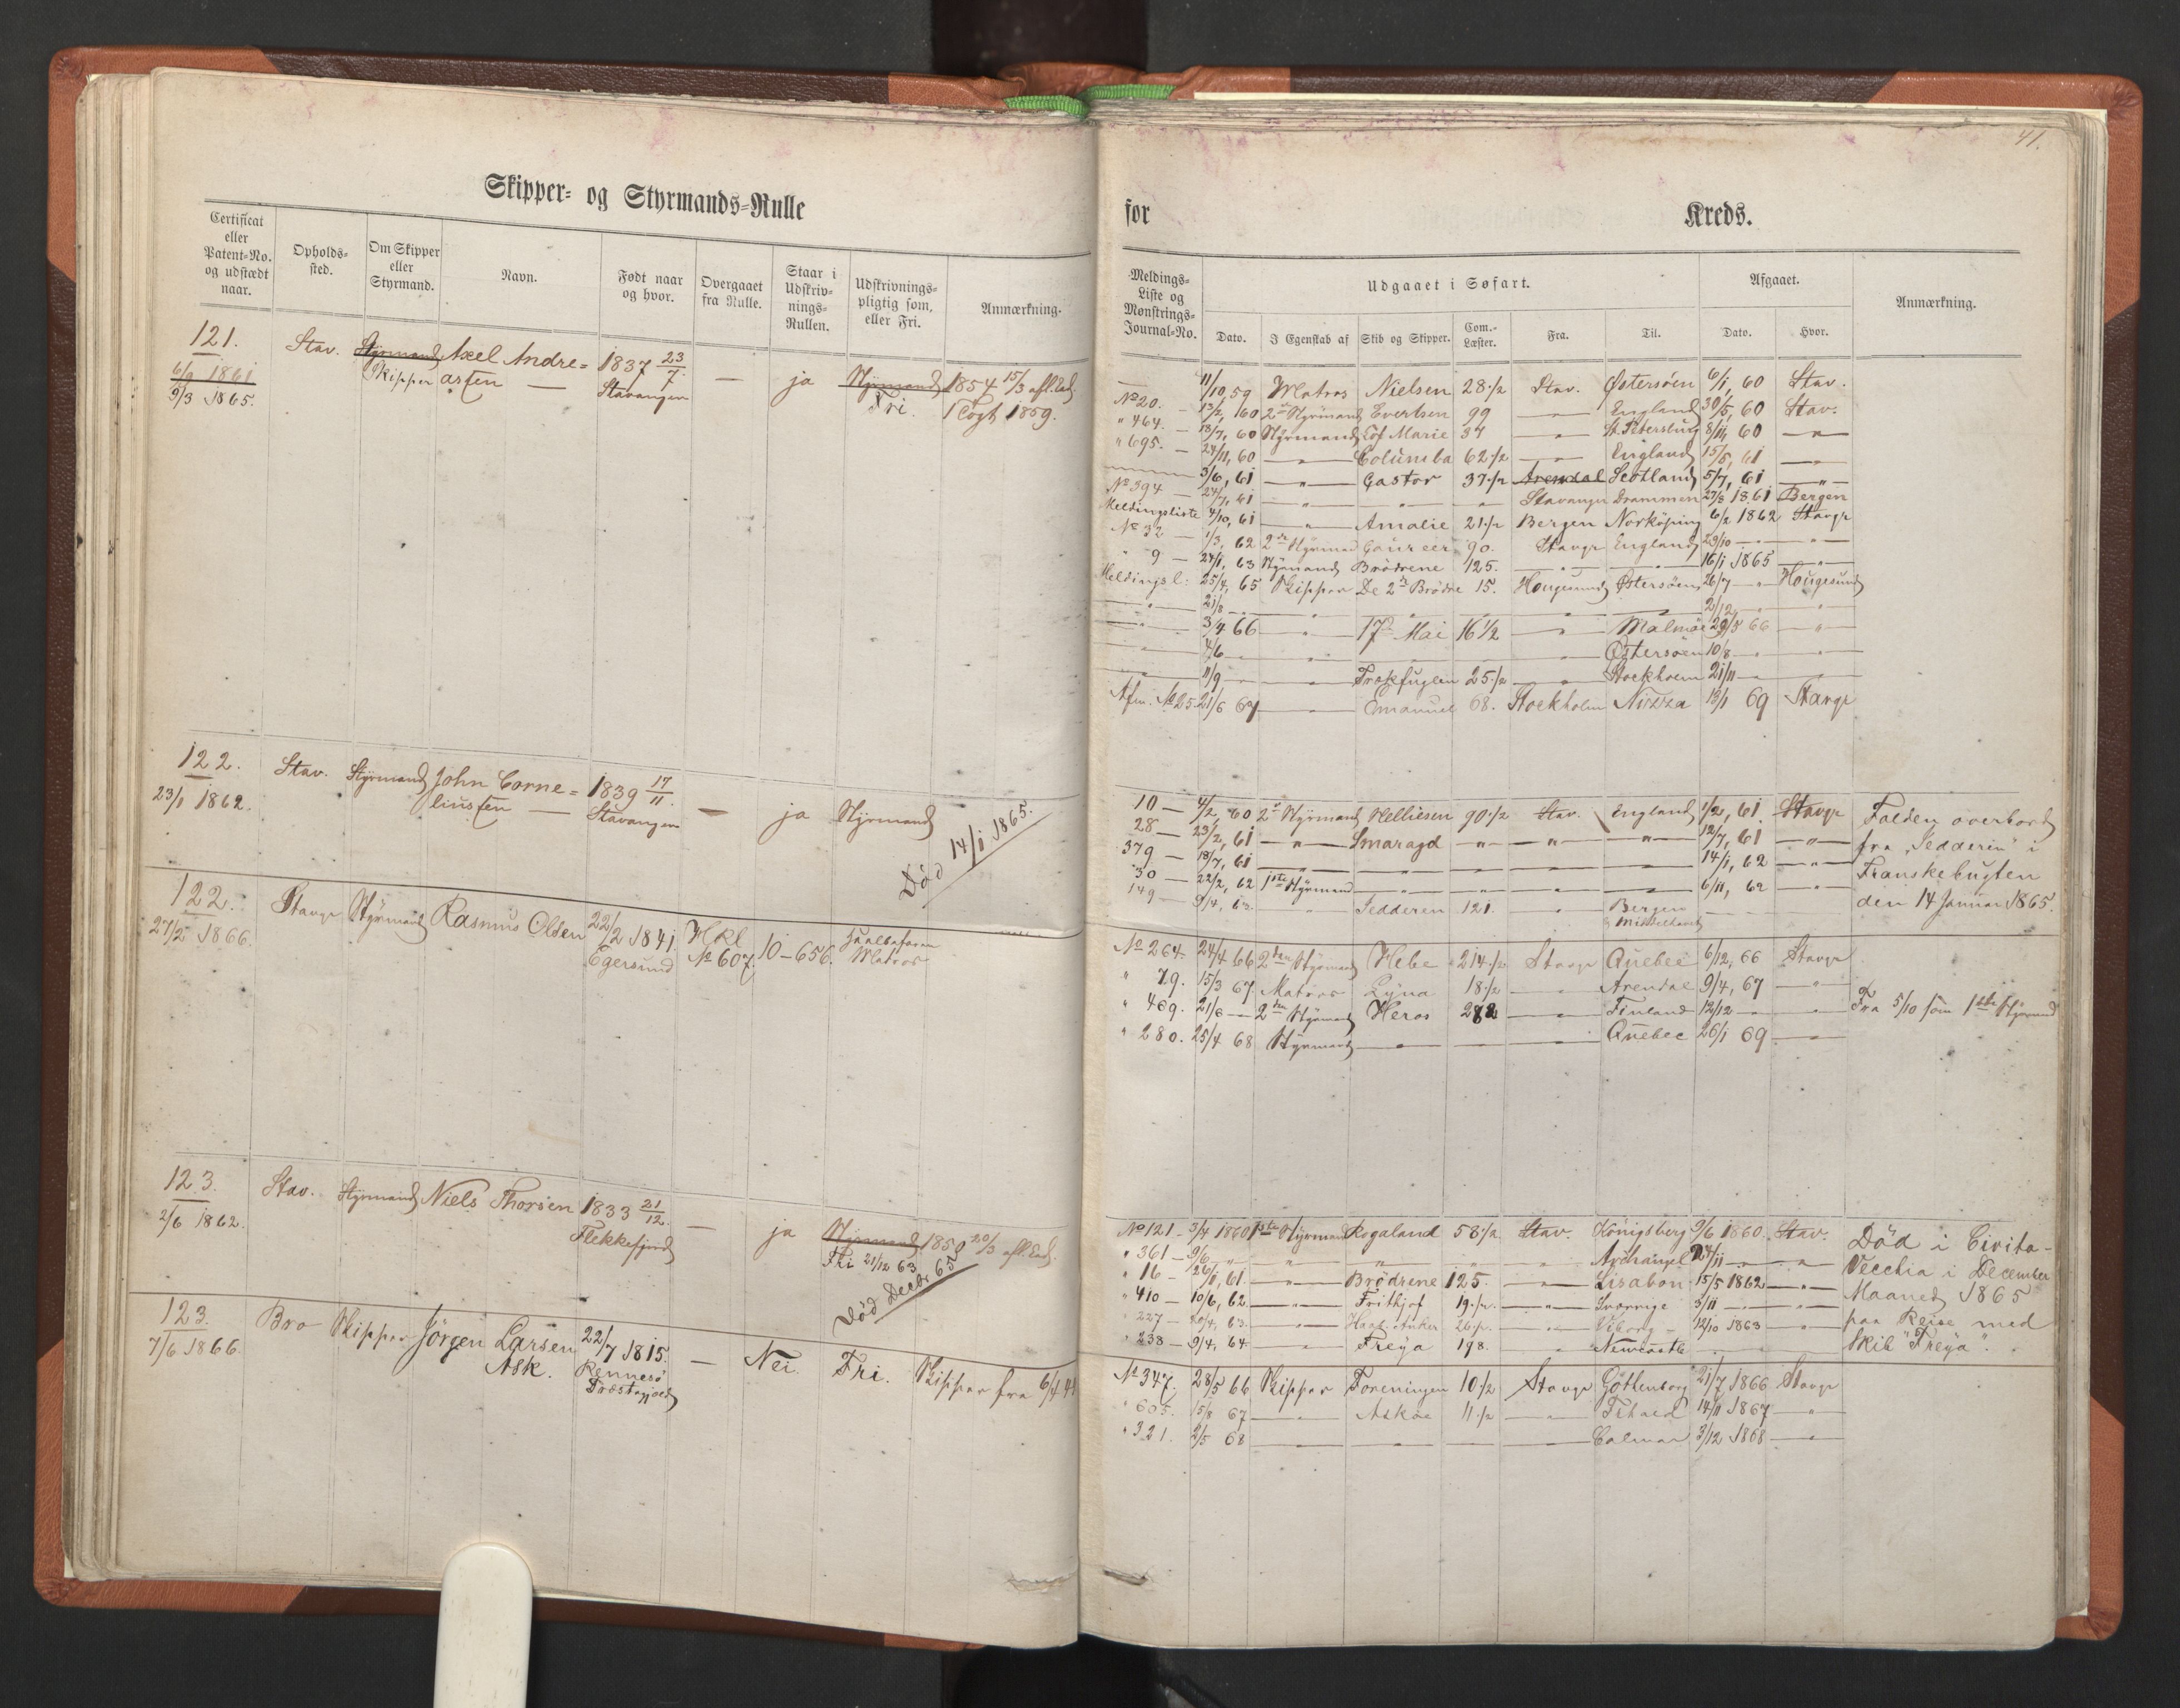 41.
Skipper- og Styrmands-Rulle
for Kreds.
Certificat eller Patent-No. og udstædt naar.
Opholds-sted.
Om Skipper eller Styrmand.
Navn.
Født naar og hvor.
Overgaaet fra Rulle.
Staar i Udskriv-nings-Rullen.
Udskrivnings-pligtig som, eller Fri.
Anmærkning.
Meldings-Liste og Mønstrings-Journal-No.
Udgaaet i Søfart.
Dato. I Egenskab af Skib og Skipper. Com.-Læster. Fra. Til.
Afgaaet.
Dato. Hvor.
Anmærkning.
121. Stav. Styrmand Axel Andre= 1837 23/7. — ja Styrmand 1854 15/3 afl. Ed.
6/9 1861 Skipper asſen — Stavanger Fri. 1 Togt 1859.
9/3 1865.
— 11/10, 59 Matros Nielsen 28 1/2 Stav. Østersøen 6/1, 60 Stav.
No 20. — 13/2, 60 2de Styrmand Evertsen 99 — " — England 30/5, 60 Stav.
" 464. — 18/7, 60 Styrmand Marie 37 — " — St. Petersburg 8/11, 60 — " —
" 695. — 24/11, 60 — " — Columba 62 1/2 — " — England 15/5, 61 —
3/6, 61 — " — Castor 37 1/2 Arendal Scotland 5/7, 61 — " —
No 394 — 24/7, 61 " " " Stavanger Drammen 27/8 1861 Bergen
Meldingsliste 4/10, 61 — " — Amalie 21 1/2 Bergen Norköping 6/2 1862 Stavgr
No 32 — 1/3, 62 2de Styrmand 90. Stavgr England 29/10 — " — "
" 9 — 24/1, 63 Styrmand Brödrene 125. " " 16/1 1865 — " —
Meldingsl: 25/4, 65 Skipper De 2de Brödre 15. Hougesund Østersøen 26/7 — " Hougesund
— " — 21/8 — " — " — 2/12 — "
— " — 3/4 66 — " — 17de Mai 16 1/2 — " — Malmöe 29/5 66 — " —
" 4/6 — " — Østersøen 10/8 — " — "
11/9 — Trækfuglen 25 1/2 — Stockholm 21/11 —
Afm. No 25. 21/6 67 — " — Emanuel 68. Stockholm Nizza 13/1 69 Stavgr
122. Stav. Styrmand John Corne= 1839 17/11. — ja Styrmand
23/1 1862. liusſen — Stavanger
Död 14/1 1865.
10 — 4/2, 60 2de Styrmand Helliesen 90 1/2 Stav. England 1/2, 61. Stavgr Falden overbord
28 — 23/2, 61 — " — Smaragd — " — " — " — 12/7, 61 — " — fra "Jedderen" i
379 — 18/7, 61 — 14/1, 62 — " — Franskebugten
30 — 22/2, 62 1ste Styrmand — " — 6/11, 62 — " — den 14 Januar 1865.
149 — 9/4, 63 " Jedderen 121. " Bergen
& Middelhavet
122. Stavgr Styrmand Rasmus Olsen 22/2 1841 Hkl 10-656. Hualbefaren
27/2 1866. Egersund No 607. Matros
No 264. 24/4 66 2den Styrmand Hebe 214 1/2 Stavgr Quebec 6/12, 66 Stavgr
" 79. 15/3 67. Matros Lyna 18 1/2 — Arendal 9/4, 67 — " —
" 469. 21/6 — 2den Styrmand Heros 282 — Finland 12/12 — " Fra 5/10 som 1ste Styrmand
" 280. 25/4 68 Styrmand — " — Quebec 26/1 69 — " —
123. Stav. Styrmand Niels Thorsen 1833 21/12. — ja Styrmand 1850 20/3 afl. Ed.
2/6 1862. Flekkefjord Fri 21/12 63
Död Decbr 65
No 121 — 3/4 1860 1ste Styrmand Rogaland 58 1/2 Stav. Königsberg 9/6 1860. Stav. Död i Civita-
" 361 — 9/6 " " " " " Archangel 24/11 — " Vecchia i December
" 16 — 26/1, 61 — " — Brödrene 125. — " — Lisabon 15/5 1862 — " — Maaned 1865
" 410 — 10/6, 62 — " — Frithjof 19 1/2. — " — Sverrige 3/11 — " — paa Reise med
" 227 — 20/4, 63. — " — Anker 26 1/2. — Viborg — 12/10 1863 — " Skib "Freya".
" 238 — 9/4, 64 — " Freya 198. " Newcastle
123. Bro Skipper Jörgen Larsen 22/7 1815. — Nei Fri. Skipper fra 6/4 41
7/6 1866. Ask. Rennesö
Præstegjeld
No 347. 28/5 66 Skipper Foreningen 10 1/2 Stavgr Göttenborg 21/7 1866 Stavgr
" 605. 15/8 67 — " — Askøe 11 1/2 — 14/11 1867 — "
" 321. 2/5 68 — " — Calmar 3/12 1868 — " —